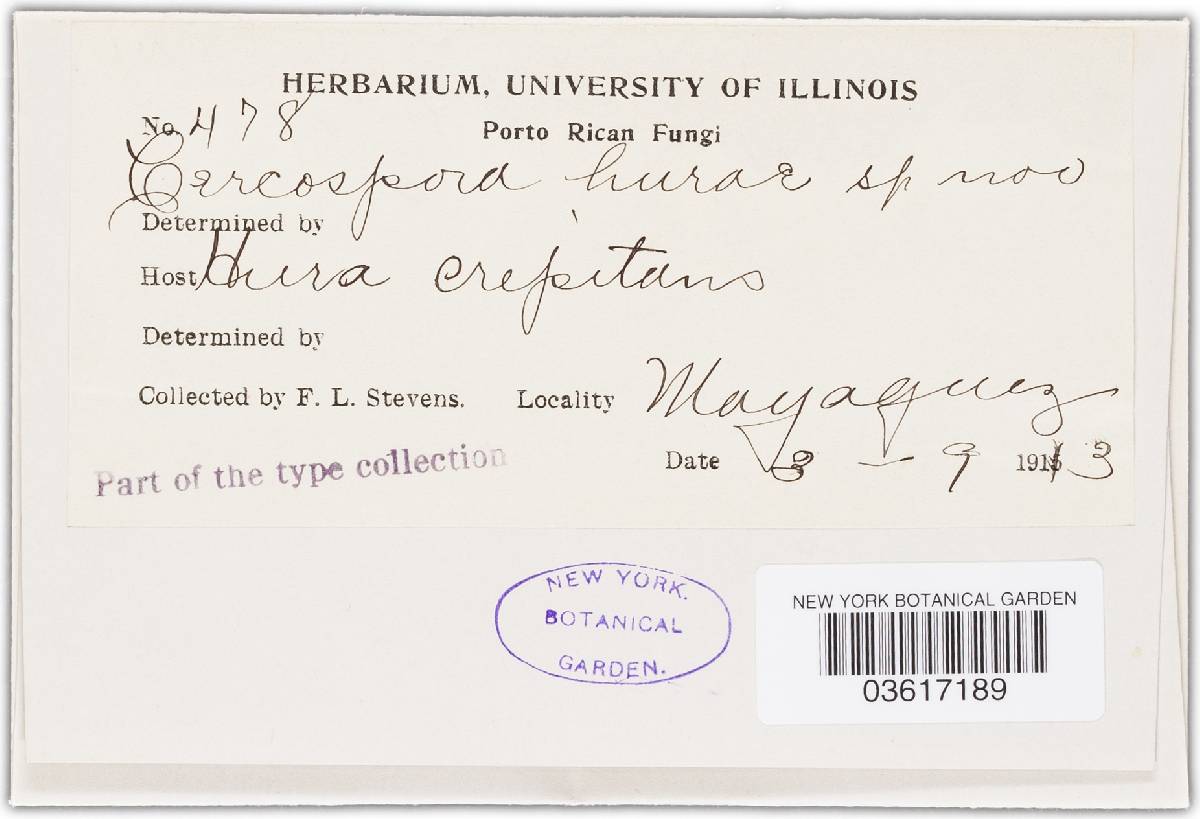 HERBARIUM, UNIVERSITY OF ILLINOIS
No. 478 Porto Rican Fungi
Cercospora hurae sp nov
Determined by
Host Hura crepitans
Determined by
Collected by F. L. Stevens. Locality Mayaguez
Part of the type collection Date 3 - 9 1913
NEW YORK.
BOTANICAL
GARDEN.
NEW YORK BOTANICAL GARDEN
03617189